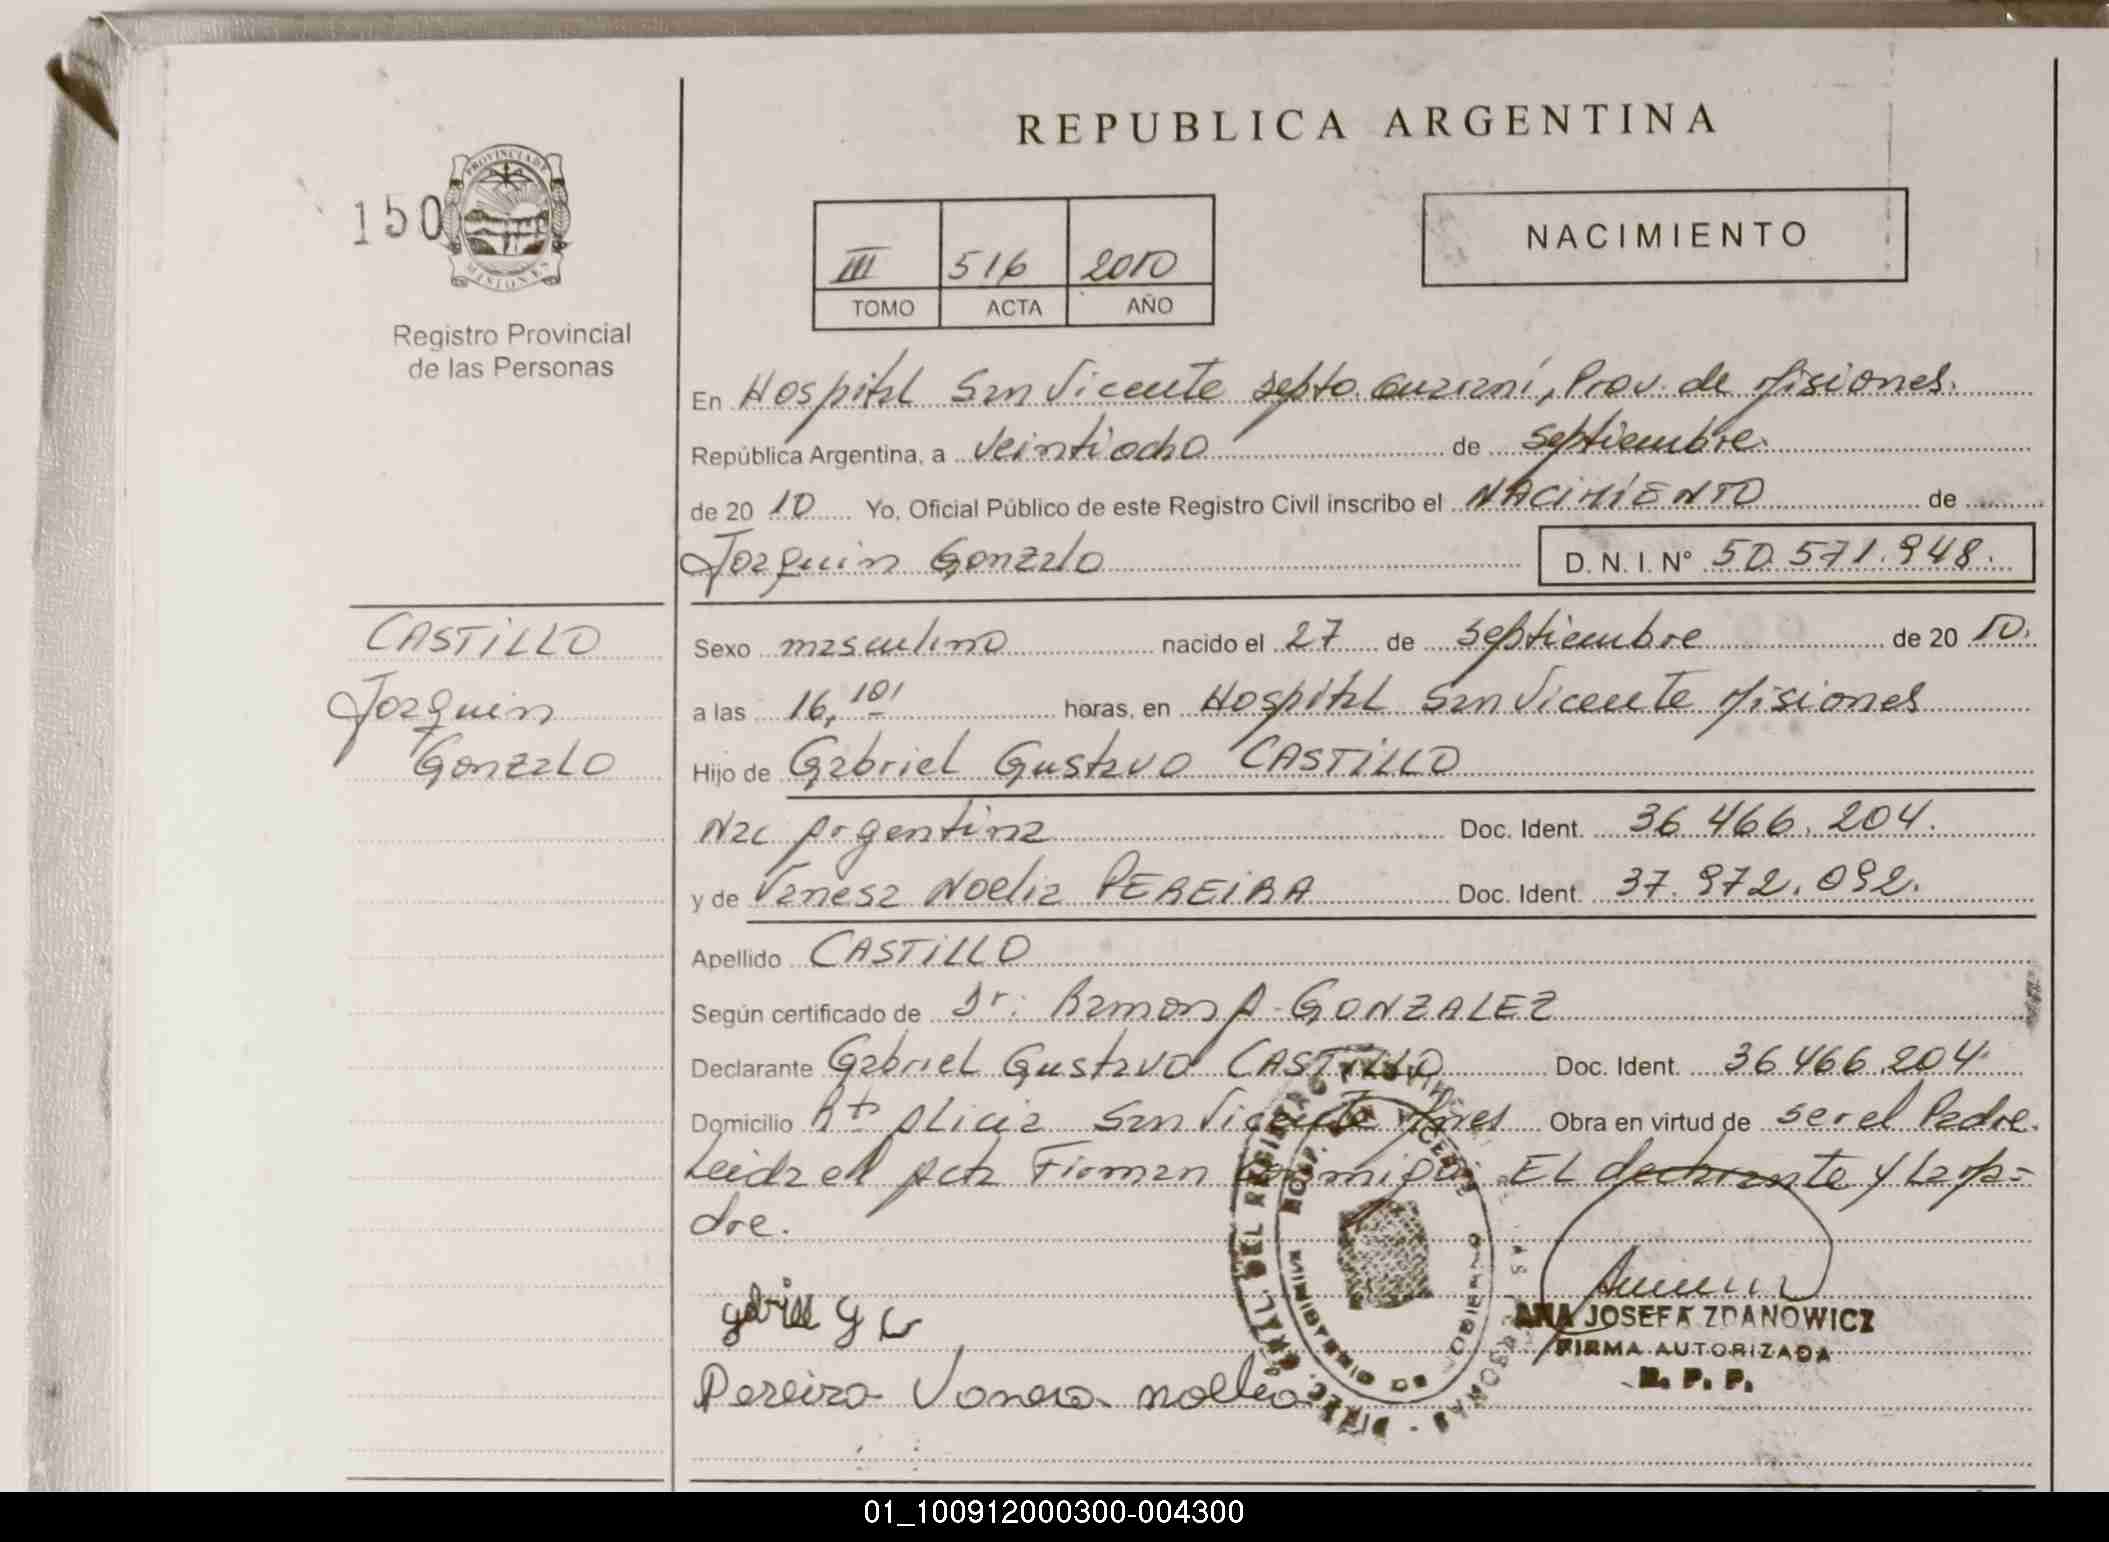 REPUBLICA ARGENTINA
PROVINCIA DE
MISIONES
150
Registro Provincial
de las Personas
III 516 2010
TOMO ACTA AÑO
NACIMIENTO
En Hospital San Vicente Depto. Guaraní, Prov. de Misiones.
República Argentina, a veintiocho de septiembre.
de 20 10 Yo, Oficial Público de este Registro Civil inscribo el NACIMIENTO de
Joaquin Gonzalo D. N. I. N° 50.571.948.
CASTILLO
Joaquin
Gonzalo
Sexo masculino nacido el 27 de septiembre de 20 10.
a las 16,10' horas, en Hospital San Vicente Misiones
Hijo de Gabriel Gustavo CASTILLO
Nac Argentina Doc. Ident. 36.466.204.
y de Vanesa Noelia PEREIRA Doc. Ident. 37.972.092.
Apellido CASTILLO
Según certificado de Dr. Ramon A. GONZALEZ
Declarante Gabriel Gustavo CASTILLO Doc. Ident. 36.466.204.
Domicilio Rta Alicia San Vicente Mnes Obra en virtud de ser el Padre.
Leida el Acta Firman conmigo. EL declarante y La Ma=
dre.
Pereira Vanesa noelia
DIREC. GRAL. DEL REGISTRO PROVINCIAL DE LAS PERSONAS
HOSP. SAN VICENTE
MINISTERIO DE GOBIERNO
ANA JOSEFA ZDANOWICZ
FIRMA AUTORIZADA
R. P. P.
01_100912000300-004300